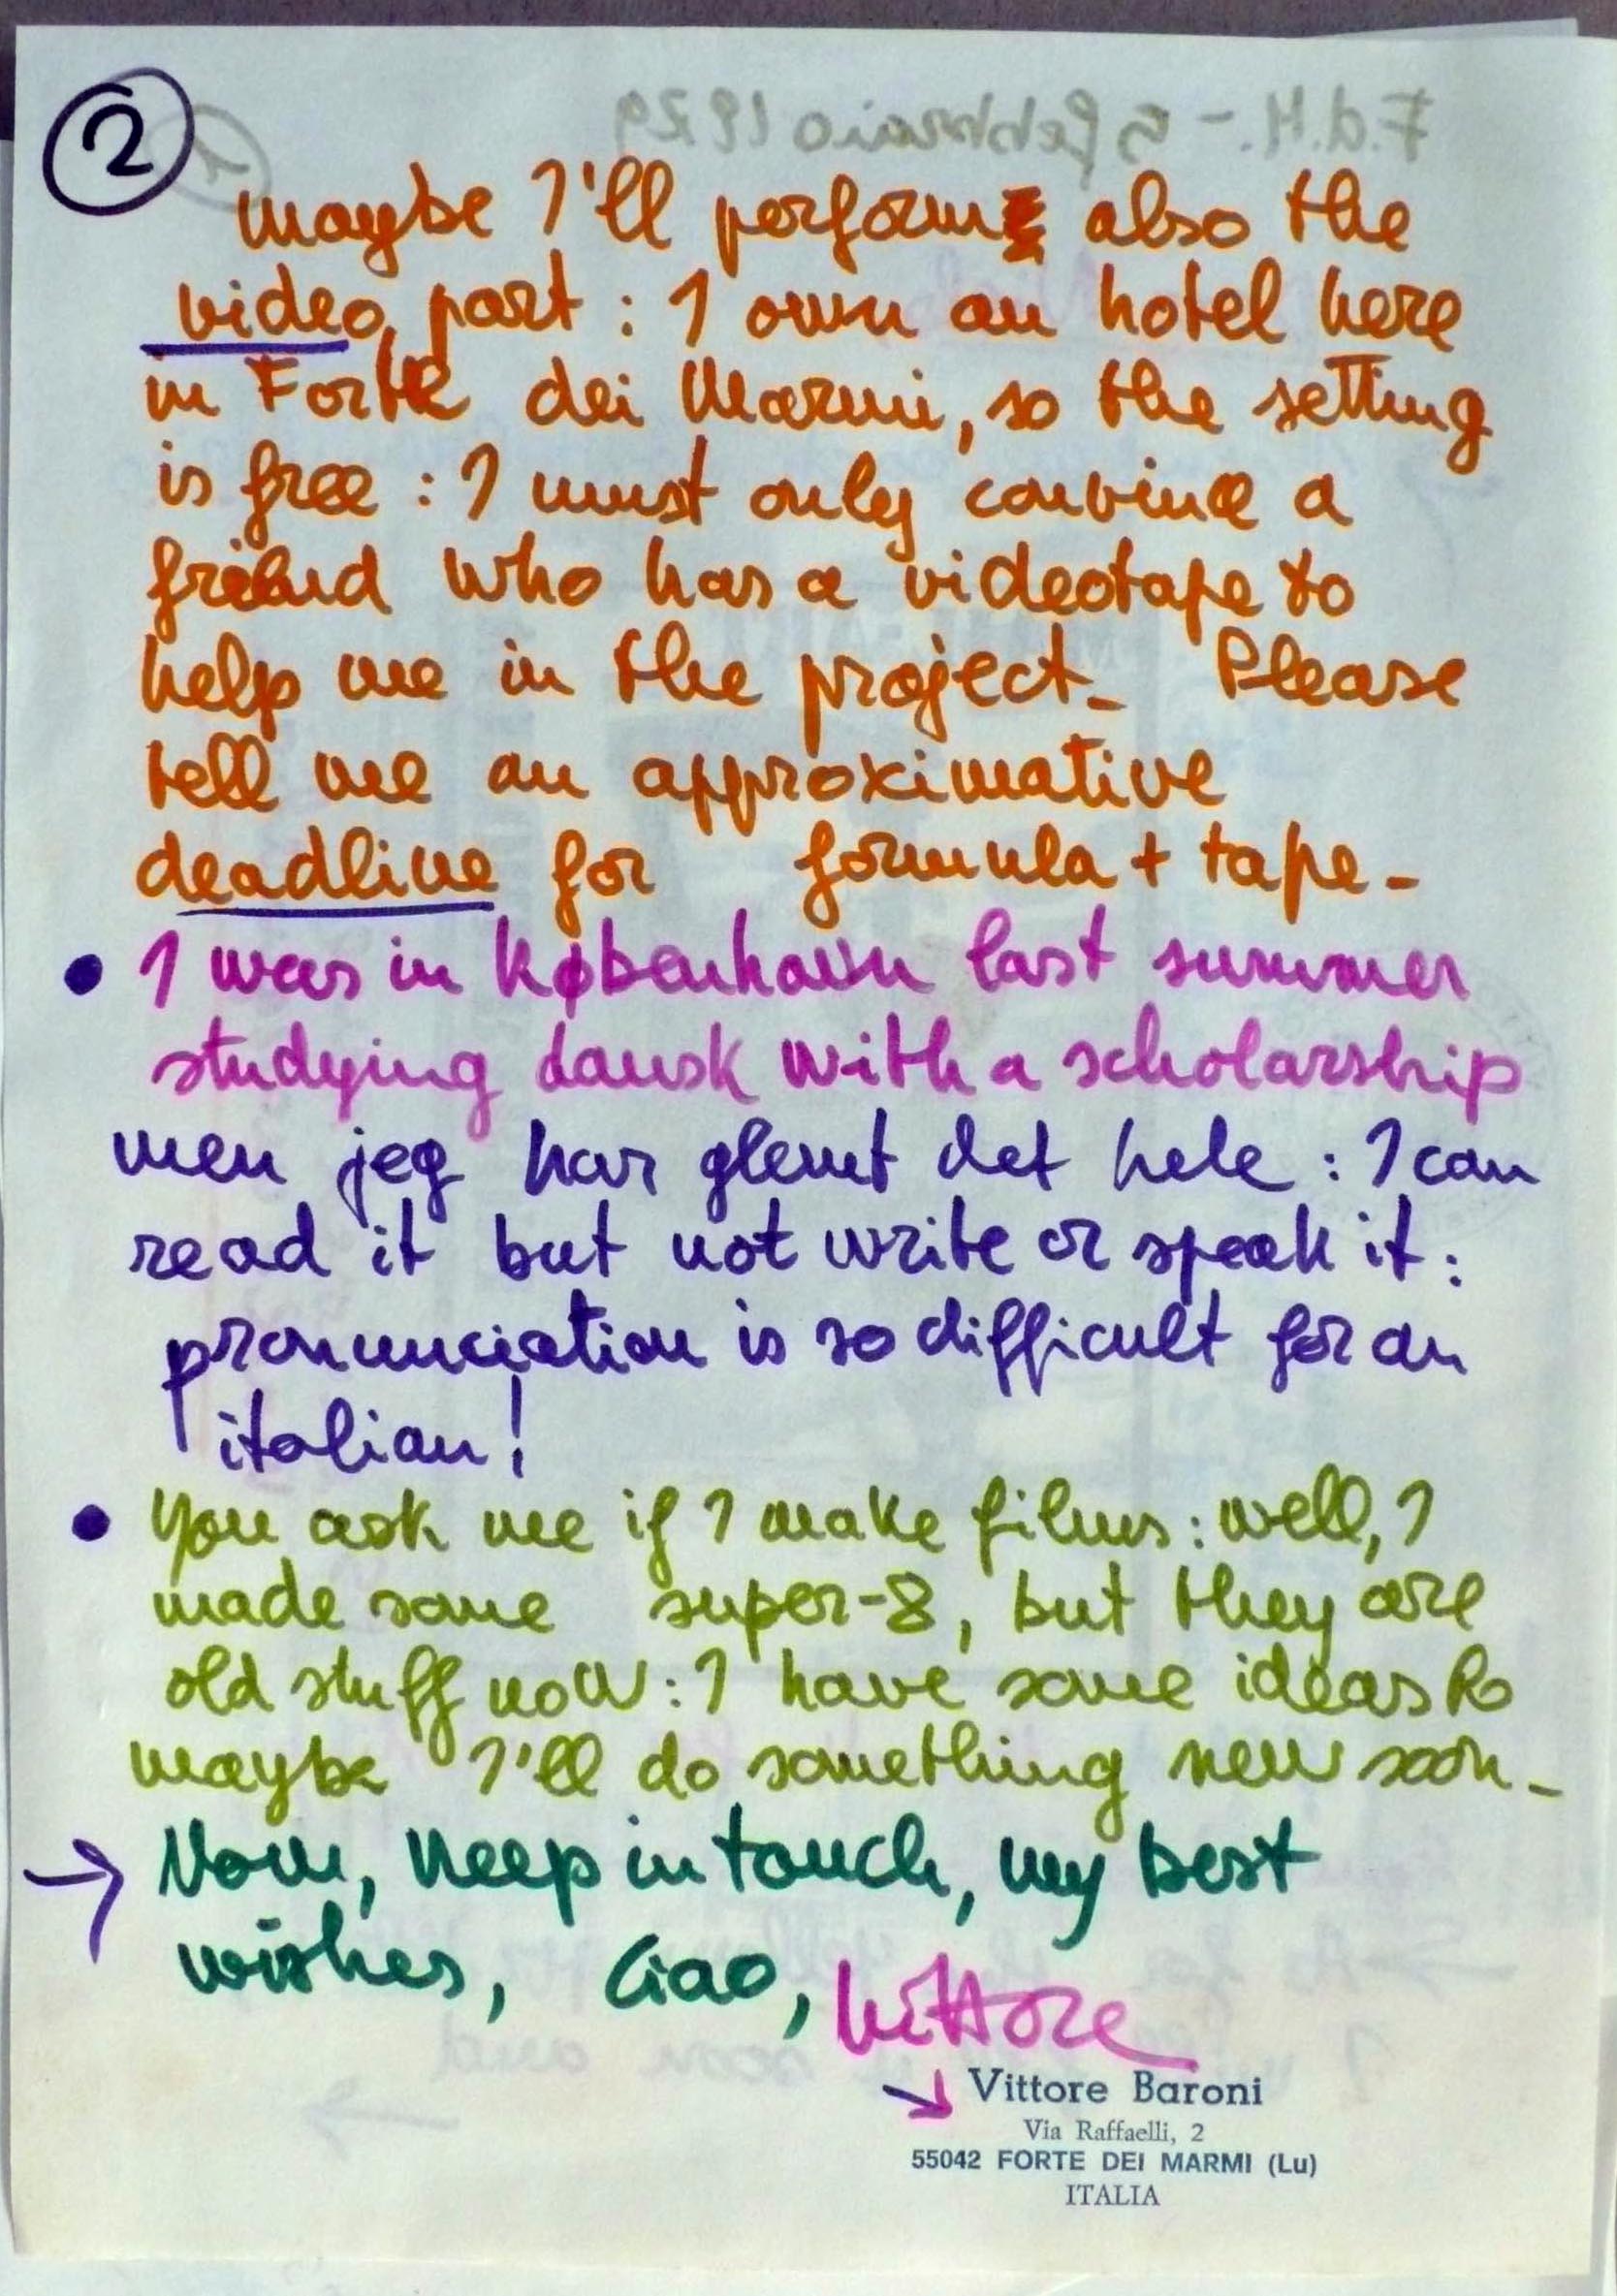 2
F.d.M. - 5 febbraio 1979
maybe I'll perform also the
video part : I own an hotel here
in Forte dei Marmi, so the setting
is free : I must only convince a
friend who has a videotape to
help me in the project_ Please
tell me an approximative
deadline for formula + tape -
• I was in København last summer
studying dansk with a scholarship
men jeg har glemt det hele : I can
read it but not write or speak it :
pronunciation is so difficult for an
italian !
• You ask me if I make films : well, I
made some super-8, but they are
old stuff now : I have some ideas &
maybe I'll do something new soon _
→ Now, keep in touch, my best
wishes, Ciao, Vittore
Vittore Baroni
Via Raffaelli, 2
55042 FORTE DEI MARMI (Lu)
ITALIA